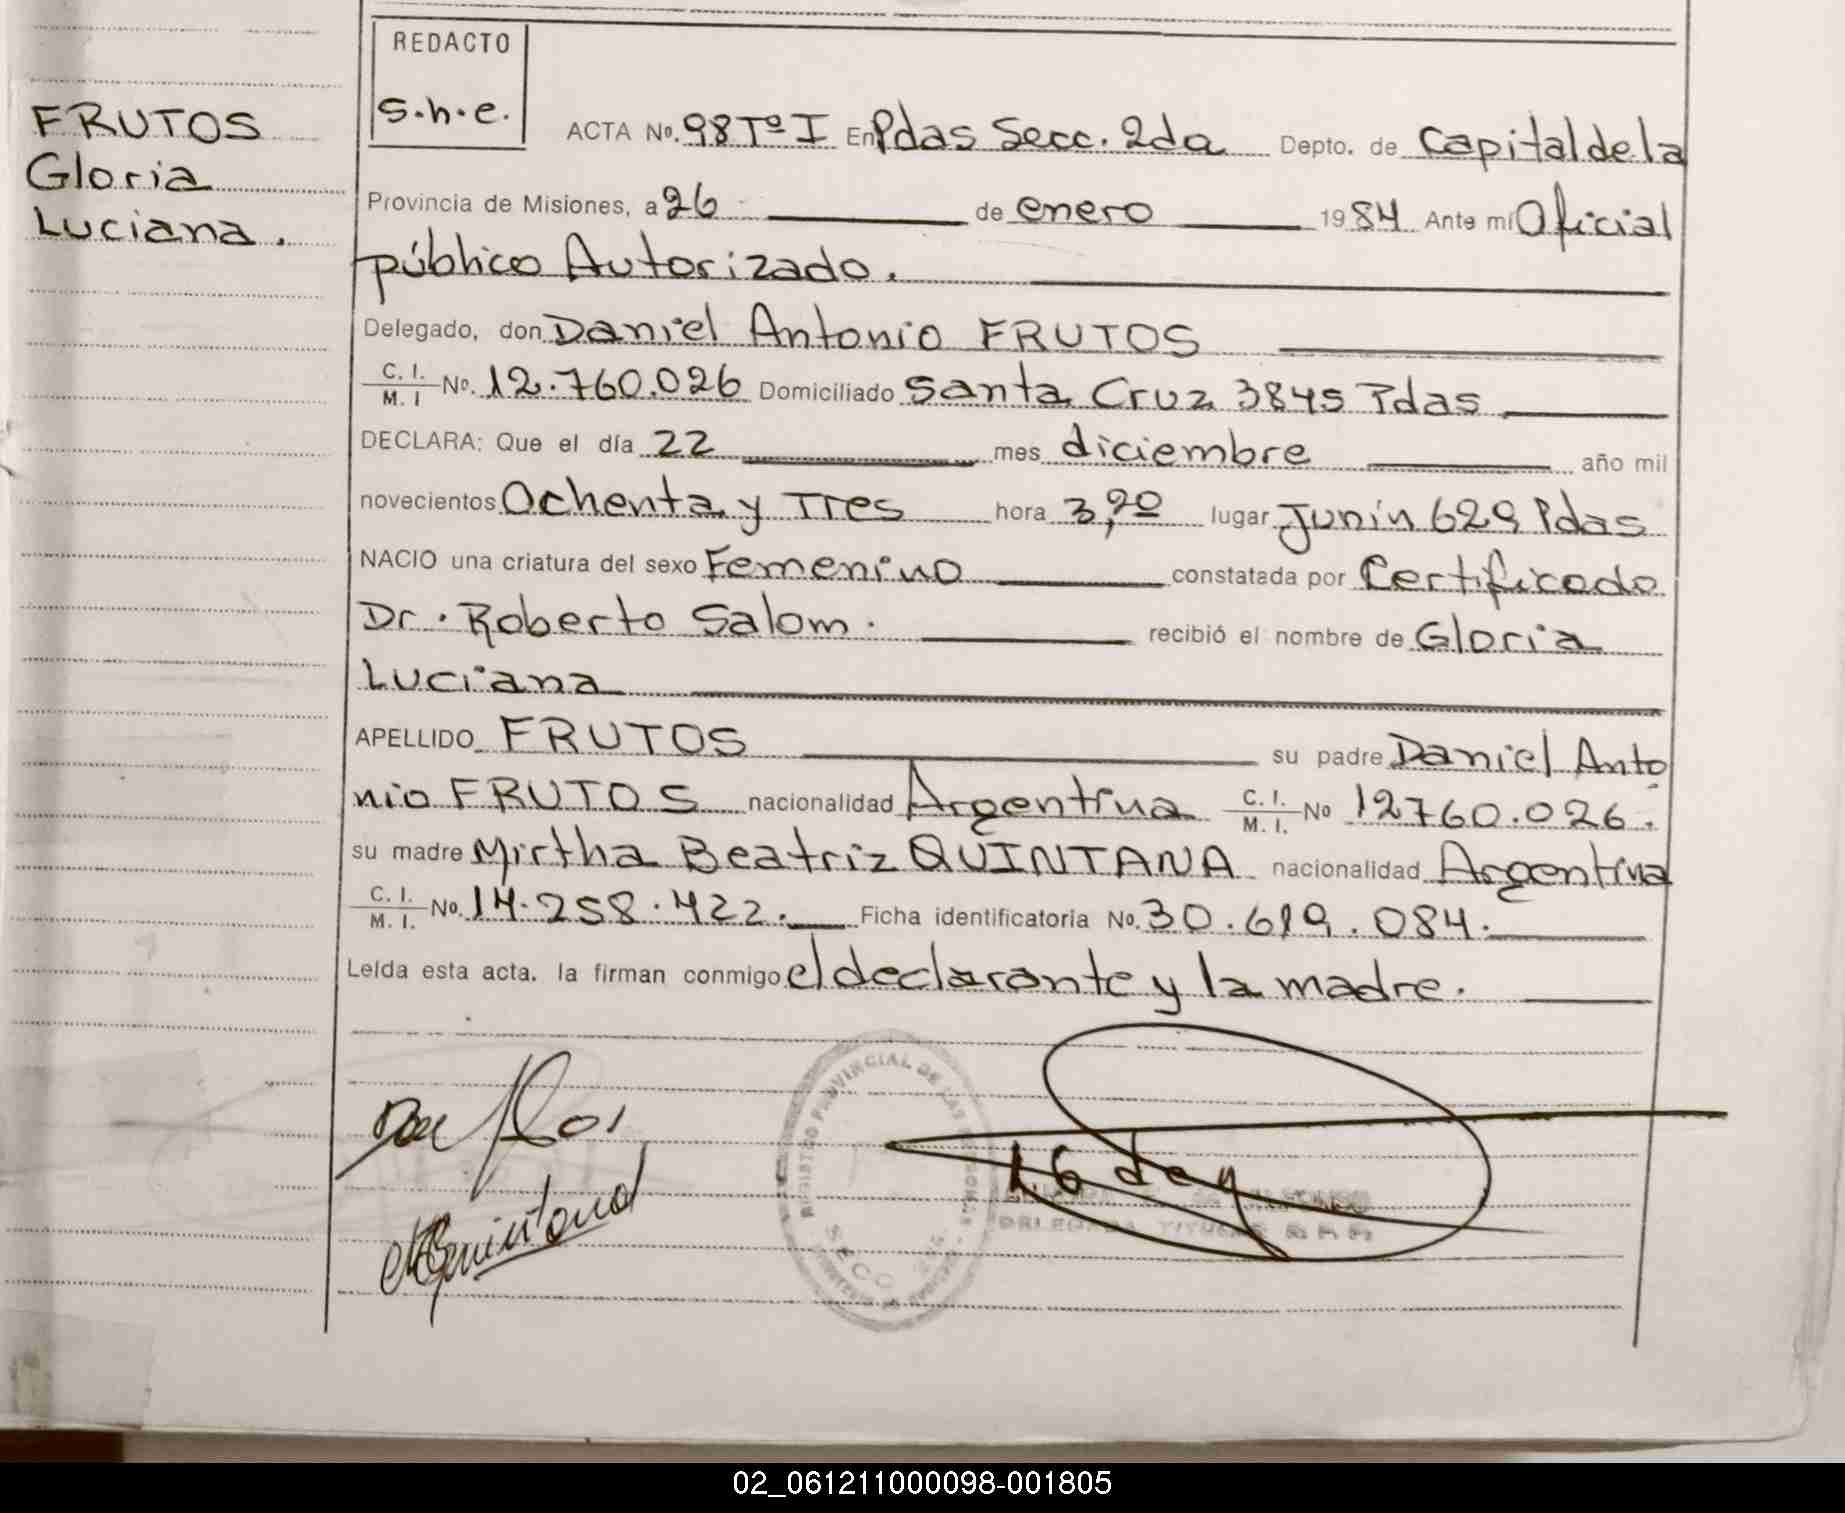 REDACTO
s.h.e.
FRUTOS
Gloria
Luciana.
ACTA No. 98 Tº I En Pdas Secc. 2da Depto. de Capital de la
Provincia de Misiones, a 26 de enero 1984 Ante mí Oficial
público Autorizado.
Delegado, don Daniel Antonio FRUTOS
C. I. M. I No. 12.760.026 Domiciliado Santa Cruz 3845 Pdas
DECLARA: Que el día 22 mes diciembre año mil
novecientos Ochenta y Tres hora 3,20 lugar Junín 629 Pdas
NACIO una criatura del sexo Femenino constatada por Certificado
Dr. Roberto Salom. recibió el nombre de Gloria
Luciana
APELLIDO FRUTOS su padre Daniel Anto
nio FRUTOS nacionalidad Argentina C. I. M. I. No 12760.026.
su madre Mirtha Beatriz QUINTANA nacionalidad Argentina
C. I. M. I. No. 14.258.422. Ficha identificatoria No. 30.619.084.
Leída esta acta. la firman conmigo el declarante y la madre.
REGISTRO PROVINCIAL DE LAS PERSONAS
SECC. 2da.
DELEGADA TITULAR
02_061211000098-001805